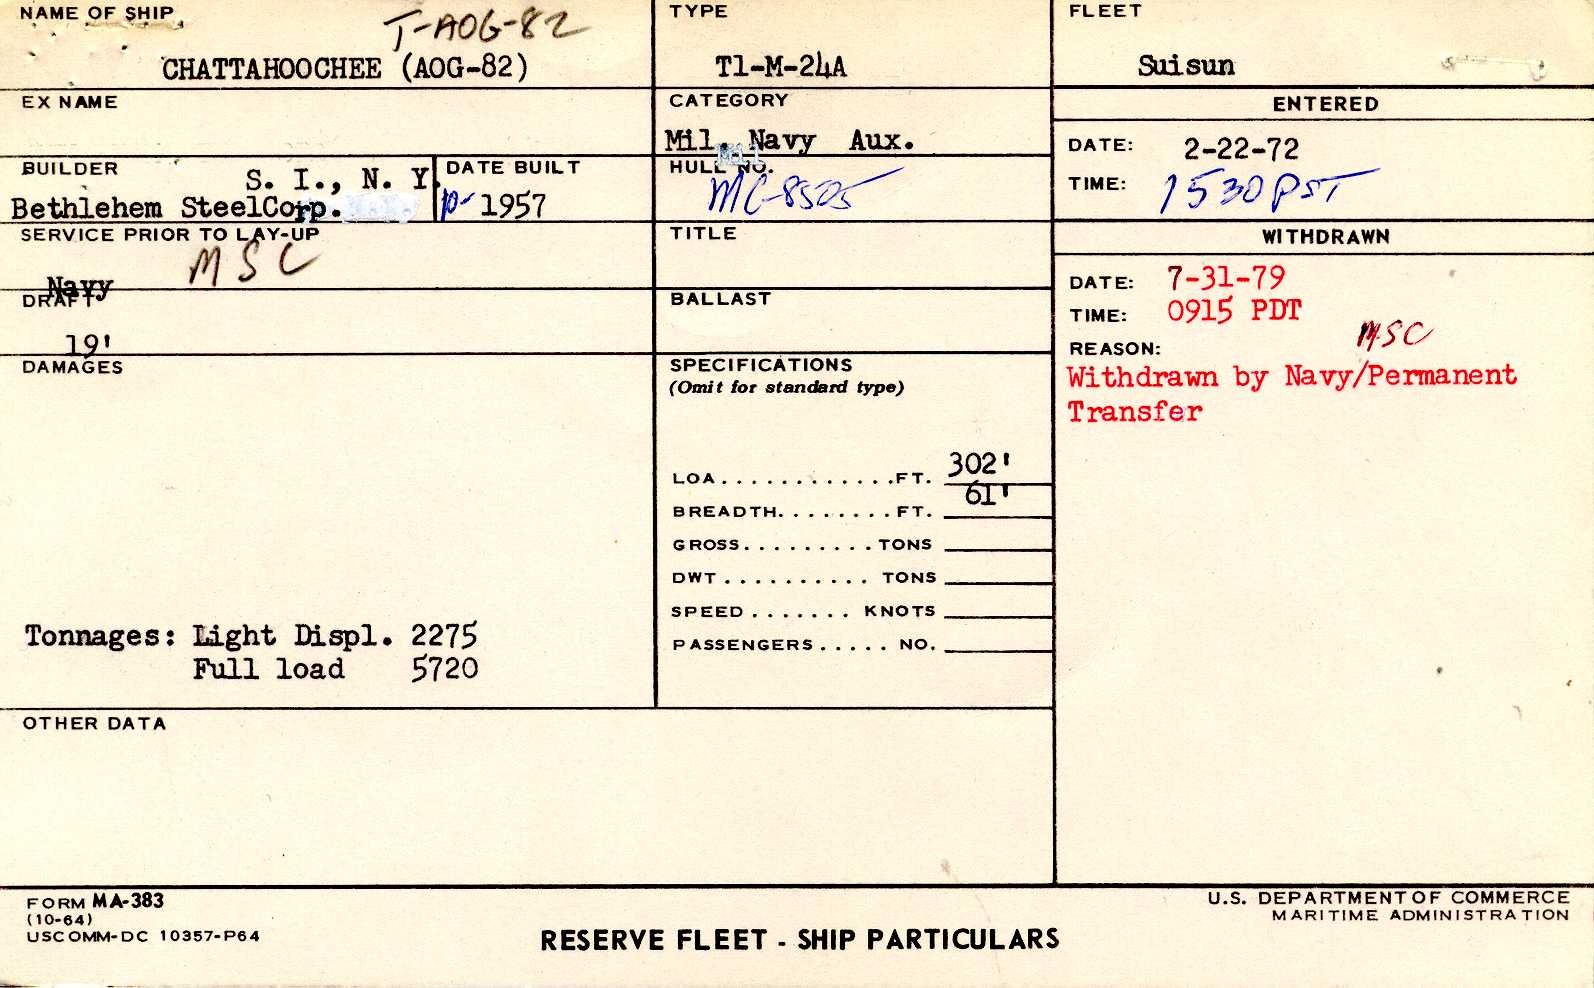 NAME OF SHIP
T-AOG-82
CHATTAHOOCHEE (AOG-82)
TYPE
T1-M-24A
FLEET
Suisun
EX NAME
CATEGORY
Mil. Navy Aux.
ENTERED
DATE: 2-22-72
TIME: 1530 PST
BUILDER
S. I., N. Y.
Bethlehem SteelCorp.
DATE BUILT
1957
HULL NO.
MC-8505
SERVICE PRIOR TO LAY-UP
MSC
Navy
TITLE
WITHDRAWN
DATE: 7-31-79
TIME: 0915 PDT
REASON: MSC
Withdrawn by Navy/Permanent
Transfer
DRAFT
19'
BALLAST
DAMAGES
Tonnages: Light Displ. 2275
Full load 5720
SPECIFICATIONS
(Omit for standard type)
LOA............FT. 302'
BREADTH........FT. 61'
GROSS.........TONS
DWT.......... TONS
SPEED....... KNOTS
PASSENGERS..... NO.
OTHER DATA
FORM MA-383
(10-64)
USCOMM-DC 10357-P64
RESERVE FLEET - SHIP PARTICULARS
U.S. DEPARTMENT OF COMMERCE
MARITIME ADMINISTRATION